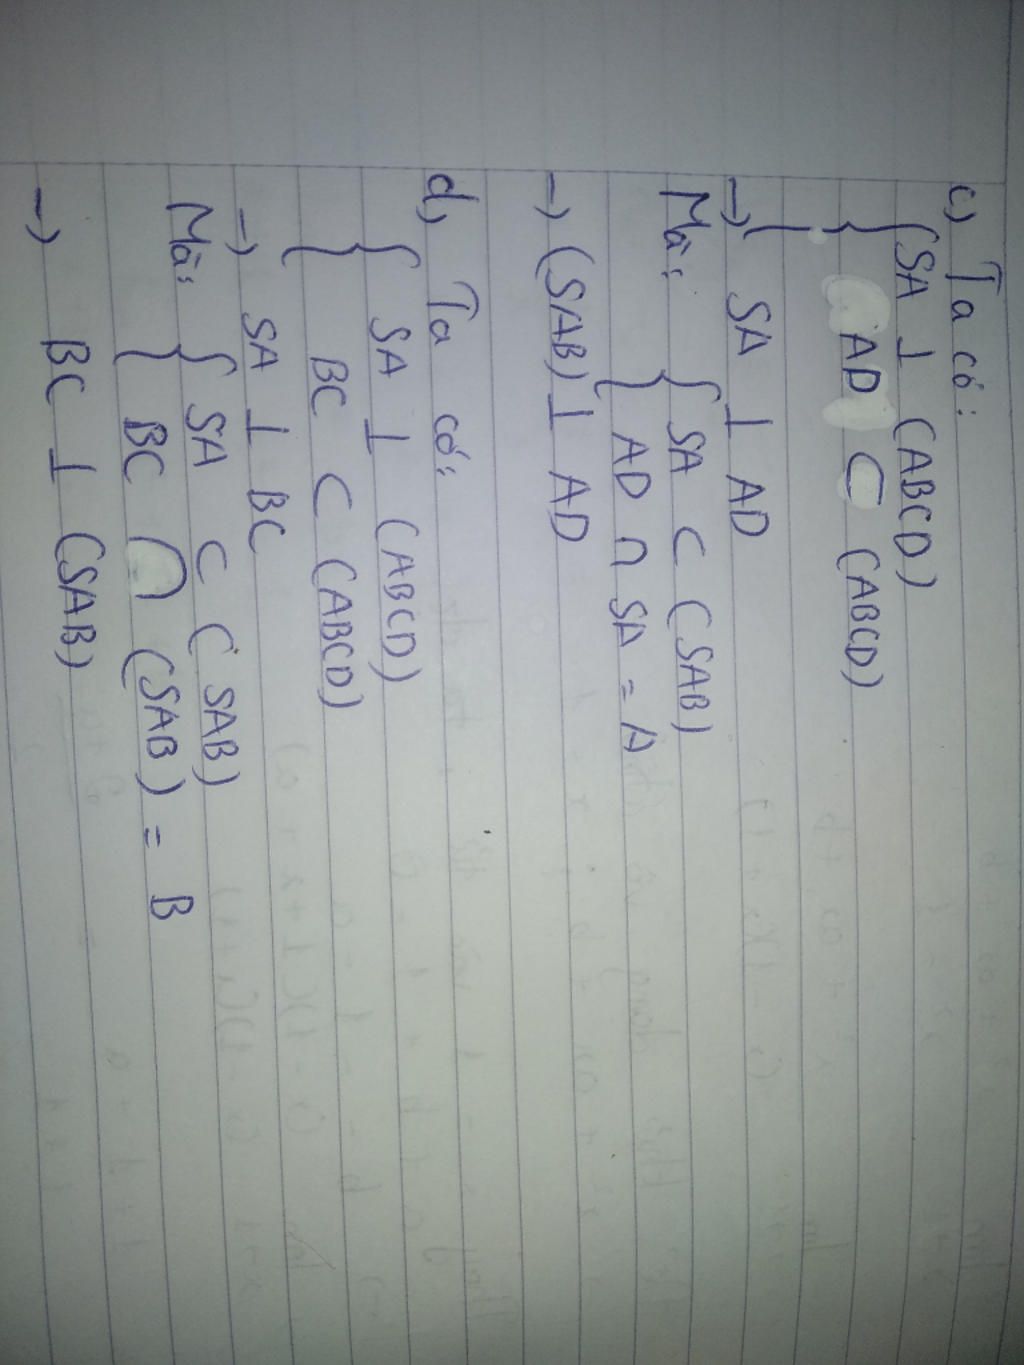 c, Ta có:
{ SA ⊥ (ABCD)
AD ⊂ (ABCD)
→ SA ⊥ AD
Mà: { SA ⊂ (SAB)
AD ∩ SA = A
→ (SAB) ⊥ AD
d, Ta có:
{ SA ⊥ (ABCD)
BC ⊂ (ABCD)
→ SA ⊥ BC
Mà: { SA ⊂ (SAB)
BC ∩ (SAB) = B
→ BC ⊥ (SAB)